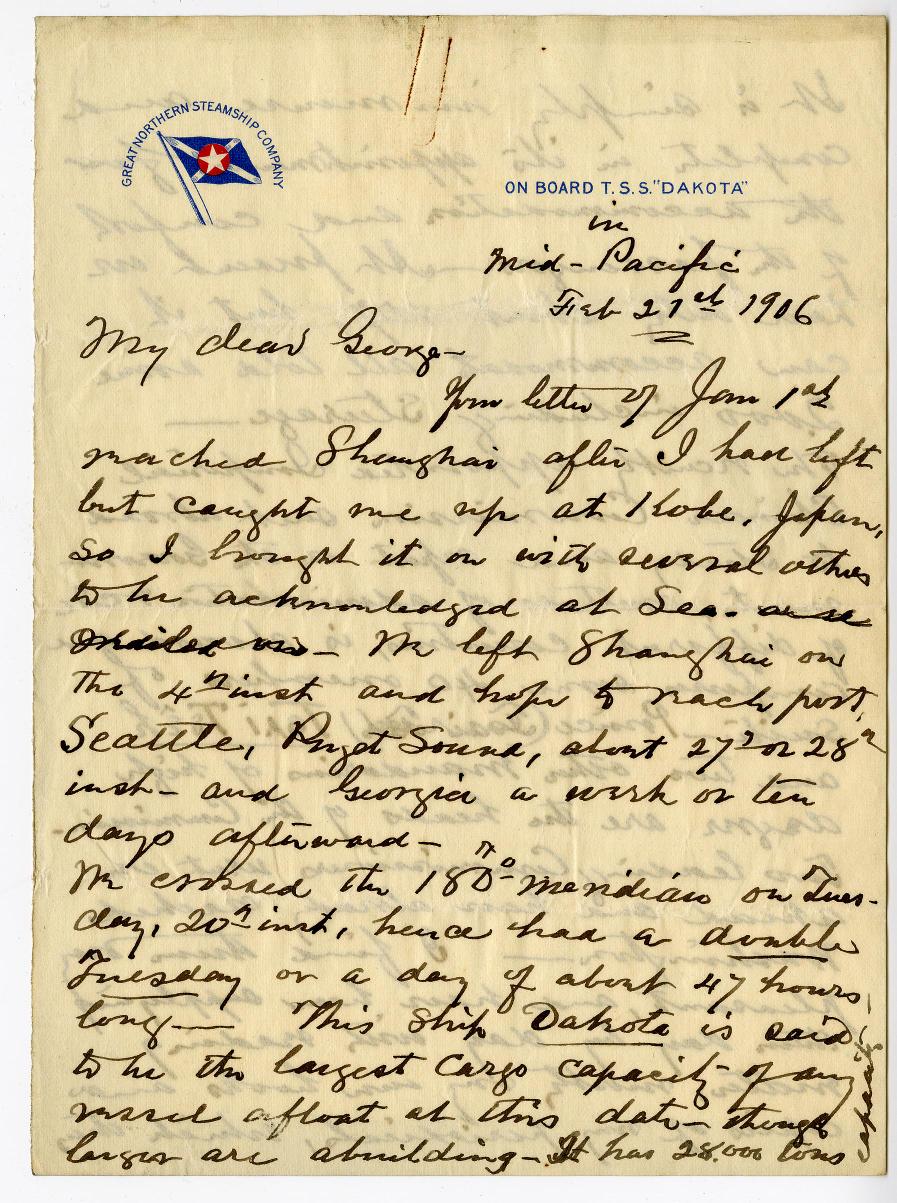 GREAT NORTHERN STEAMSHIP COMPANY
ON BOARD T.S.S. "DAKOTA"
in
Mid-Pacific
Feb 21st 1906
My dear George-
Your letter of Jan 1st
reached Shanghai after I had left
but caught me up at Kobe, Japan,
so I brought it on with several others
to be acknowledged at Sea.
- We left Shanghai on
the 4th inst and hope to reach port,
Seattle, Puget Sound, about 27th or 28th
inst- and Georgia a week or ten
days afterward-
We crossed the 180th° meridian on Tues-
day, 20th inst, hence had a double
Tuesday or a day of about 47 hours
long- This ship Dakota is said
to be the largest cargo capacity of any
vessel afloat at this date- though
larger are abuilding- It has 28.000 tons
capacity-